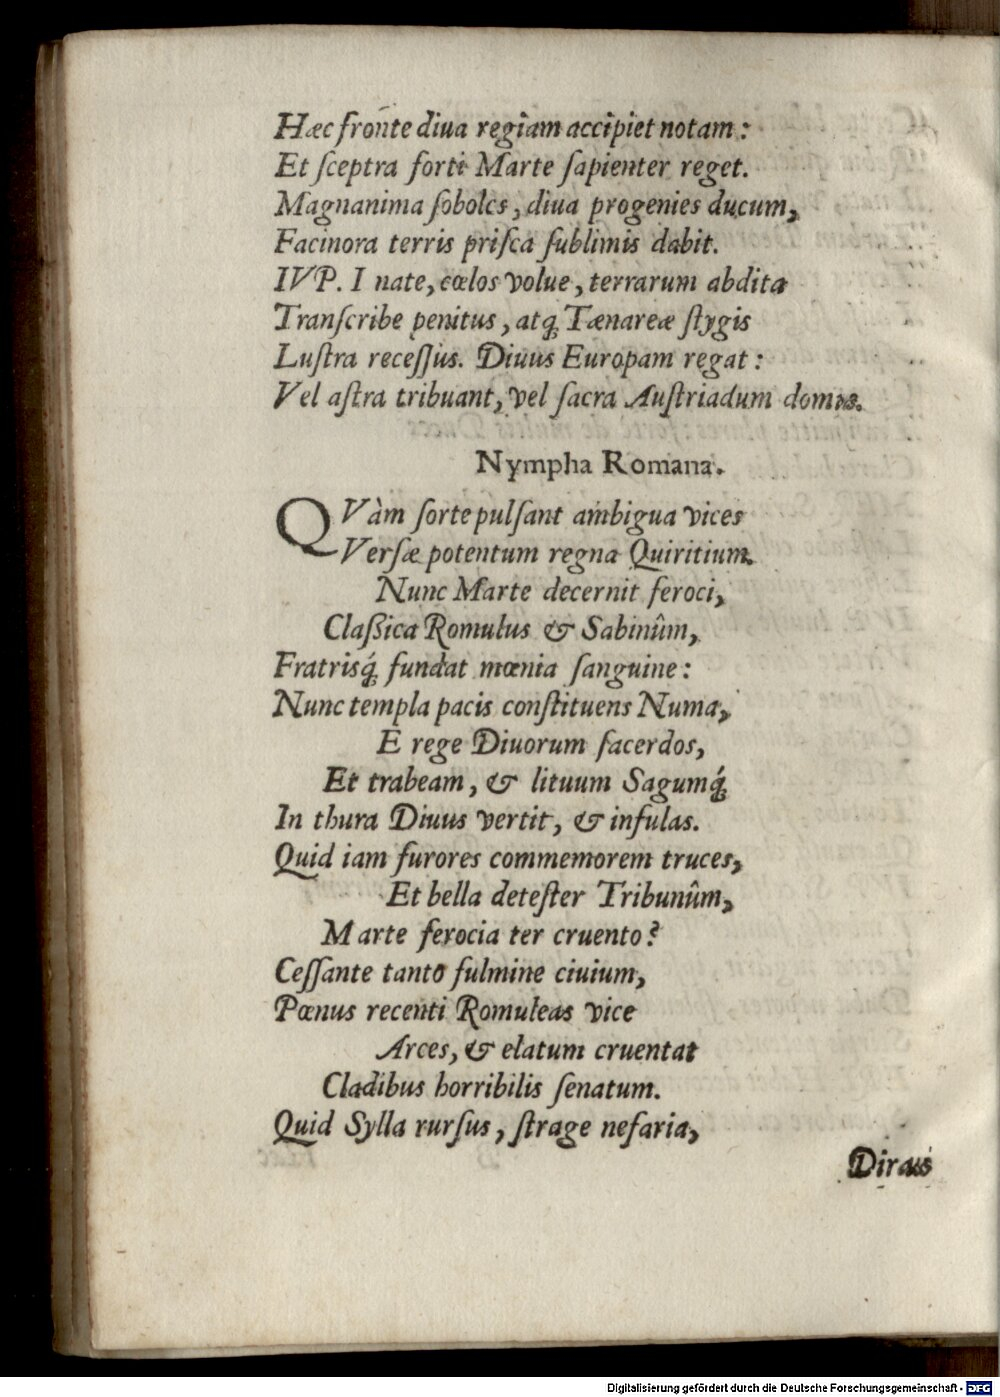 Hæc fronte diua regiam accipiet notam:
Et ſceptra forti Marte ſapienter reget.
Magnanima ſoboles, diua progenies ducum,
Facinora terris priſca ſublimis dabit.
IVP. I nate, cœlos volue, terrarum abdita
Tranſcribe penitus, atq́; Tænareæ ſtygis
Luſtra receſſus. Diuus Europam regat:
Vel aſtra tribuant, vel ſacra Auſtriadum domus.
Nympha Romana.
QVàm ſorte pulſant ambigua vices
Verſæ potentum regna Quiritium.
Nunc Marte decernit feroci,
Claßica Romulus & Sabinûm,
Fratrisq́; fundat mœnia ſanguine:
Nunc templa pacis conſtituens Numa,
E rege Diuorum ſacerdos,
Et trabeam, & lituum Sagumq́;
In thura Diuus vertit, & infulas.
Quid iam furores commemorem truces,
Et bella deteſter Tribunûm,
Marte ferocia ter cruento?
Ceſſante tanto fulmine ciuium,
Pœnus recenti Romuleas vice
Arces, & elatum cruentat
Cladibus horribilis ſenatum.
Quid Sylla rurſus, ſtrage nefaria,
Diraus
Digitalisierung gefördert durch die Deutsche Forschungsgemeinschaft - DFG